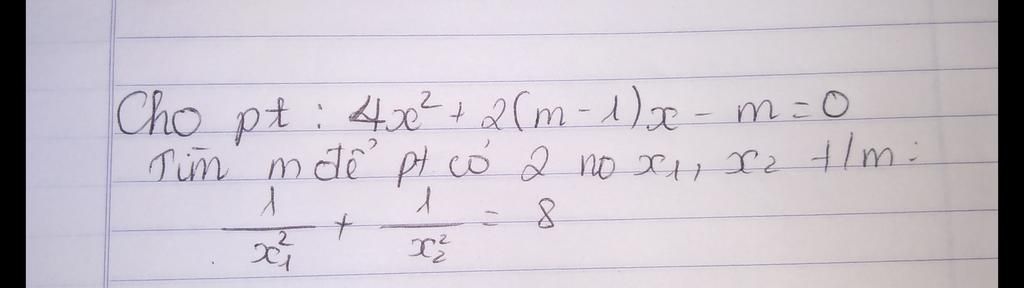 Cho pt : 4x² + 2(m - 1)x - m = 0
Tìm m để pt có 2 no x₁, x₂ t/m :
1/x₁² + 1/x₂² = 8